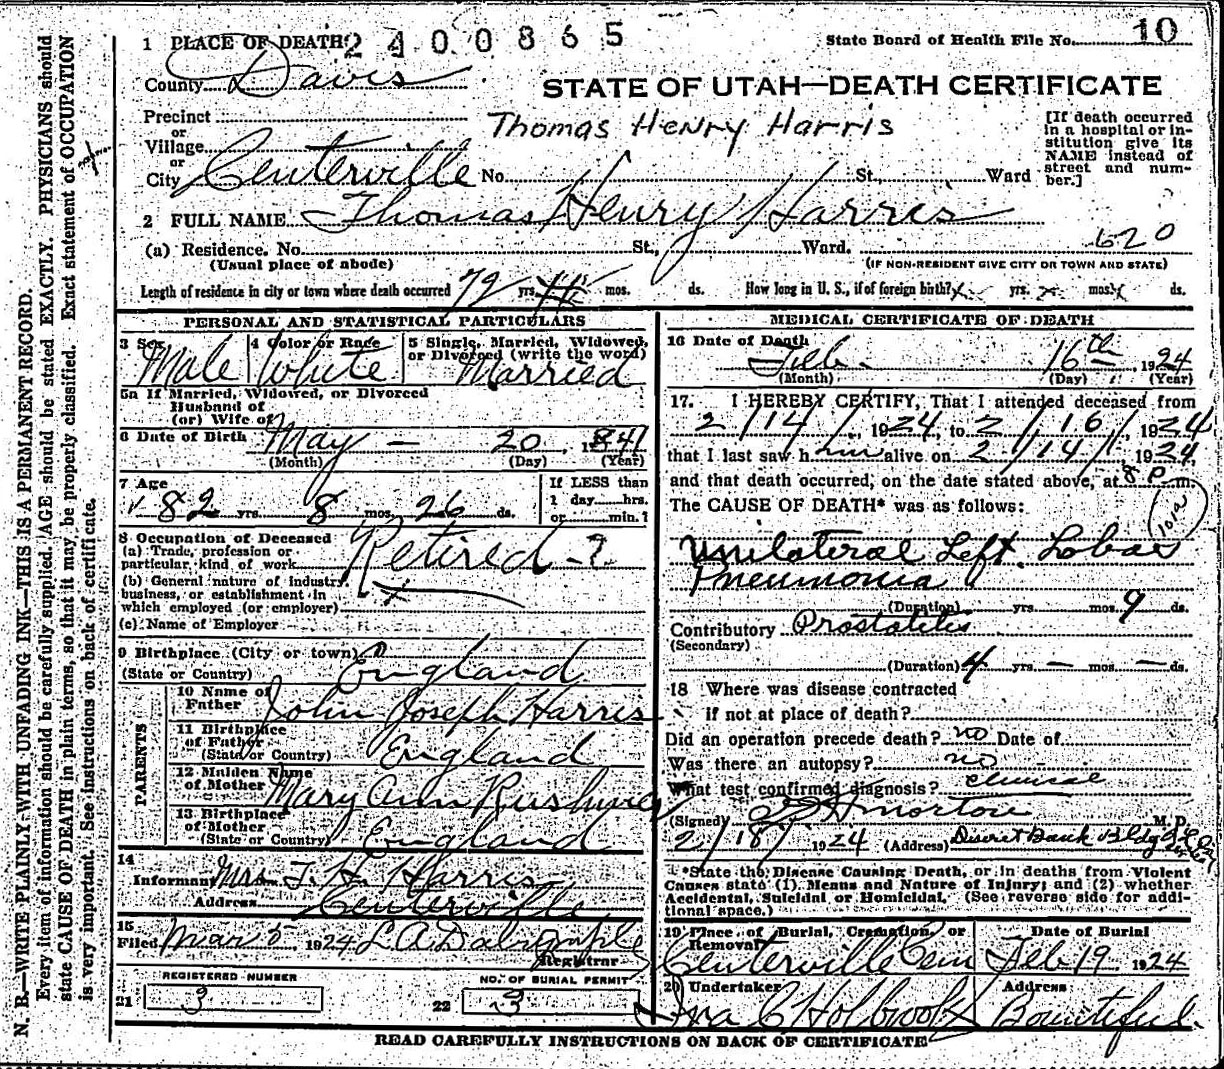 1 PLACE OF DEATH
2400865
State Board of Health File No. 10
County Davis
STATE OF UTAH—DEATH CERTIFICATE
Precinct
or
Village
or
City Centerville No. St., Ward
Thomas Henry Harris
[If death occurred
in a hospital or in-
stitution give its
NAME instead of
street and num-
ber.]
2 FULL NAME Thomas Henry Harris
(a) Residence. No. St., Ward. 620
(Usual place of abode) (IF NON-RESIDENT GIVE CITY OR TOWN AND STATE)
Length of residence in city or town where death occurred 72 yrs. mos. ds. How long in U. S., if of foreign birth? x yrs. x mos. x ds.
PERSONAL AND STATISTICAL PARTICULARS
3 Sex Male
4 Color or Race White
5 Single, Married, Widowed,
or Divorced (write the word)
Married
5a If Married, Widowed, or Divorced
Husband of
(or) Wife of
6 Date of Birth May — 20, 1841
(Month) (Day) (Year)
7 Age
82 yrs. 8 mos. 26 ds.
If LESS than
1 day hrs.
or min.?
8 Occupation of Deceased
(a) Trade, profession or
particular kind of work Retired - ?
(b) General nature of industry,
business, or establishment in
which employed (or employer)
(c) Name of Employer
9 Birthplace (City or town)
(State or Country) England
PARENTS
10 Name of
Father John Joseph Harris
11 Birthplace
of Father
(State or Country) England
12 Maiden Name
of Mother Mary Ann
13 Birthplace
of Mother
(State or Country) England
14
Informant Mrs. T. H. Harris
Address Centerville
15
Filed Mar 5 1924 L A Dalrymple
Registrar
REGISTERED NUMBER
21 3
NO. OF BURIAL PERMIT
22 3
MEDICAL CERTIFICATE OF DEATH
16 Date of Death
Feb. 16th, 1924
(Month) (Day) (Year)
17. I HEREBY CERTIFY, That I attended deceased from
2/14/, 1924, to 2/16/, 1924
that I last saw him alive on 2/14/, 1924,
and that death occurred, on the date stated above, at 8 P. m.
The CAUSE OF DEATH* was as follows:
Unilateral Left Lobar
Pneumonia
(Duration) yrs. mos. 9 ds.
Contributory Prostatitis
(Secondary)
(Duration) 4 yrs. — mos. — ds.
18 Where was disease contracted
if not at place of death?
Did an operation precede death? no Date of
Was there an autopsy? no
What test confirmed diagnosis? clinical
(Signed) Morton M. D.
2/18/, 1924 (Address) Deseret Bank Bldg
*State the Disease Causing Death, or in deaths from Violent
Causes state (1) Means and Nature of Injury; and (2) whether
Accidental, Suicidal or Homicidal. (See reverse side for addi-
tional space.)
19 Place of Burial, Cremation, or
Removal
Centerville Cem
Date of Burial
Feb 19 1924
20 Undertaker
Ira C Holbrook
Address
Bountiful.
READ CAREFULLY INSTRUCTIONS ON BACK OF CERTIFICATE
N. B.—WRITE PLAINLY WITH UNFADING INK—THIS IS A PERMANENT RECORD.
Every item of information should be carefully supplied. AGE should be stated EXACTLY. PHYSICIANS should
state CAUSE OF DEATH in plain terms, so that it may be properly classified. Exact statement of OCCUPATION
is very important. See instructions on back of certificate.